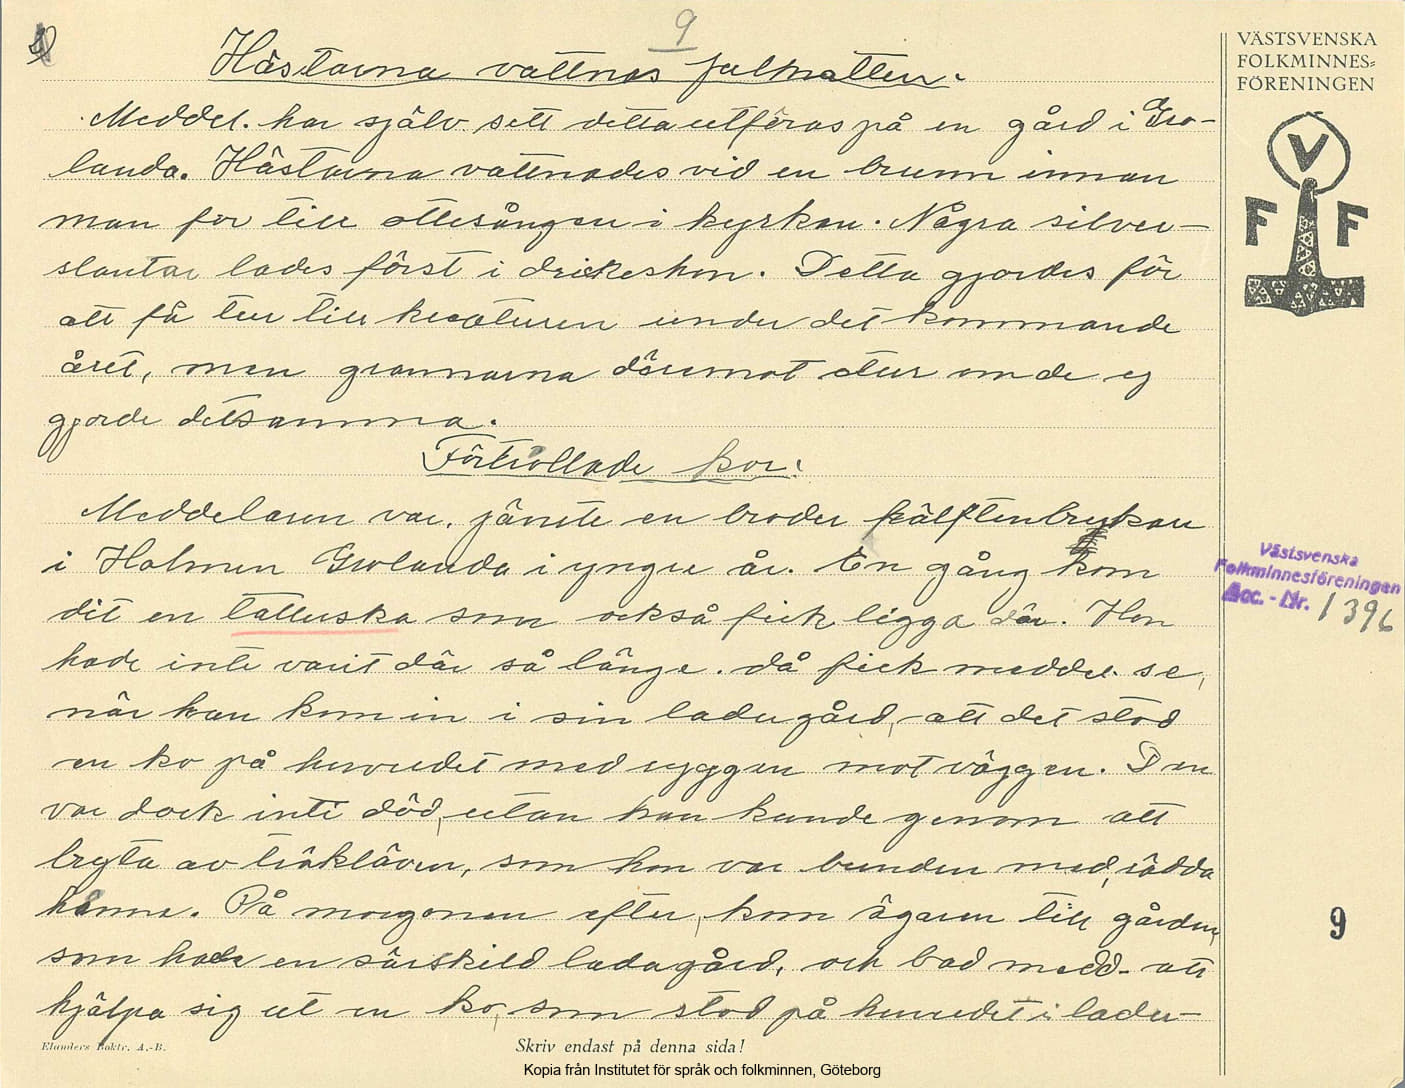 9
VÄSTSVENSKA
FOLKMINNES=
FÖRENINGEN
V
F F
Hästarna vattnas julnatten.
Meddel. har själv sett detta utföras på en gård i Gro-
landa. Hästarna vattnades vid en brunn innan
man for till ottesången i kyrkan. Några silver-
slantar lades först i drickeshon. Detta gjordes för
att få tur till kreaturen under det kommande
året, men grannarna däremot otur om de ej
gjorde detsamma.
Förtrollade kor.
Meddelaren var jämte en broder hälftenbrukare
i Holmen Grolanda i yngre år. En gång kom
dit en tattuska som också fick ligga där. Hon
hade inte varit där så länge. då fick meddel. se,
när han kom in i sin ladugård, att det stod
en ko på huvudet med ryggen mot väggen. Den
var dock inte död, utan han kunde genom att
bryta av träklåven, som hon var bunden med, rädda
henne. På morgonen efter, kom ägaren till gården,
som hade en särskild ladagård, och bad medd. att
hjälpa sig ut en ko, som stod på huvudet i ladu-
Västsvenska
Folkminnesföreningen
Acc. - Nr. 1396
9
Elanders Boktr. A.-B.
Skriv endast på denna sida!
Kopia från Institutet för språk och folkminnen, Göteborg